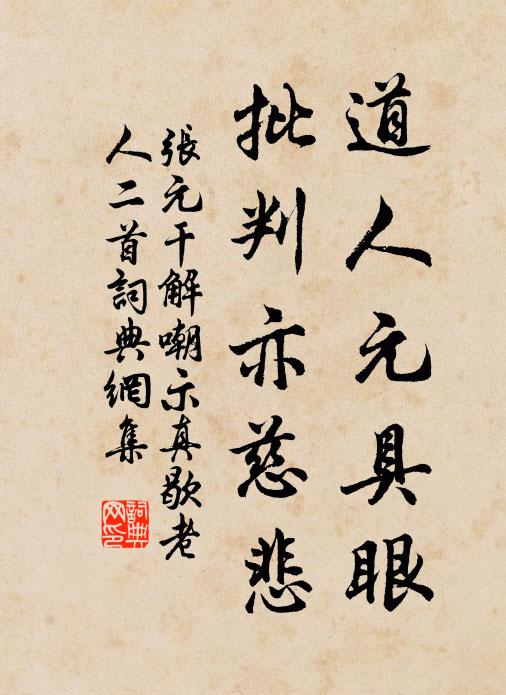 道人元具眼
批判亦慈悲
張元干解嘲示真歇老
人二首詞典網集
詞典网印